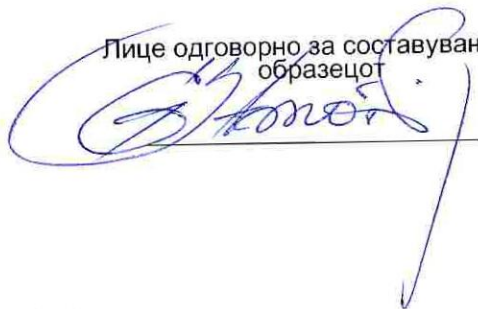 Лице одговорно за составуван
образецот